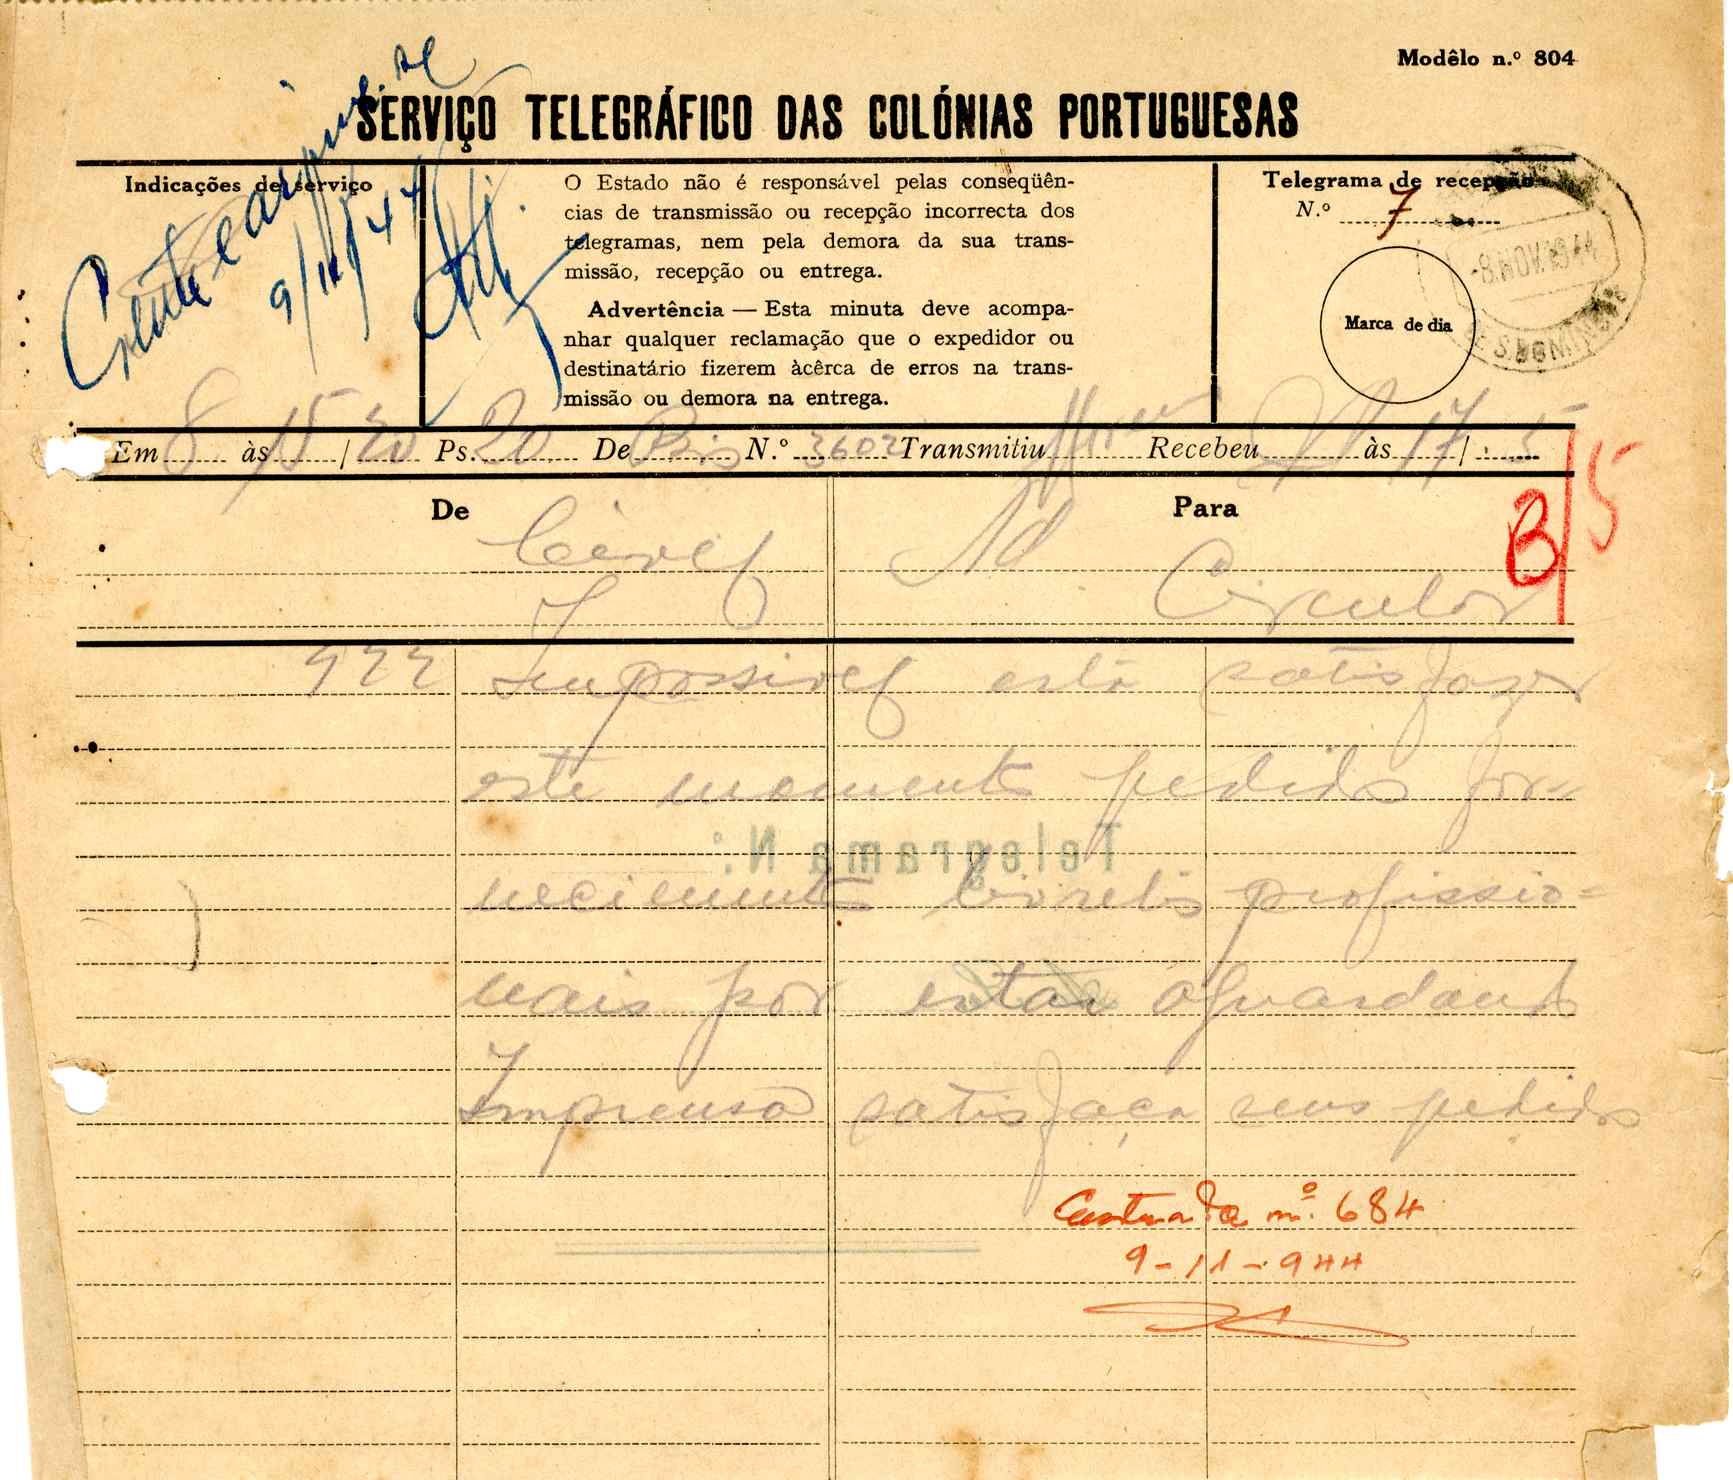 Modêlo n.º 804
SERVIÇO TELEGRÁFICO DAS COLÓNIAS PORTUGUESAS
Ciente e arquive-se
9/11/44
Indicações de serviço
O Estado não é responsável pelas conseqüên-
cias de transmissão ou recepção incorrecta dos
telegramas, nem pela demora da sua trans-
missão, recepção ou entrega.
Advertência — Esta minuta deve acompa-
nhar qualquer reclamação que o expedidor ou
destinatário fizerem àcêrca de erros na trans-
missão ou demora na entrega.
Telegrama de recepção
N.º 7
-8.NOV.1944
S. DOMINGOS
Marca de dia
Em 8 às 15/30 Ps. 20 De Bis N.º 3602 Transmitiu Recebeu às 17/5
B/5
De Para
Civel Ad
Circular
977 Impossivel está satisfazer
este momento pedido for=
necimento livretes profissio=
nais por estar aguardando
Imprensa satisfaça seus pedidos
Telegrama N.º:
n.º 684
9-11-944